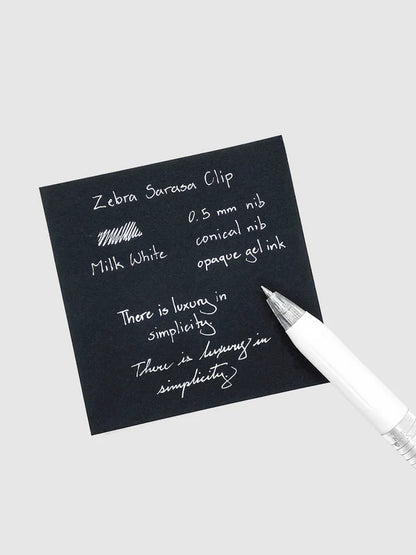 Zebra Sarasa Clip
0.5 mm nib
conical nib
Milk White
opaque gel ink
There is luxury in
simplicity.
There is luxury in
simplicity.